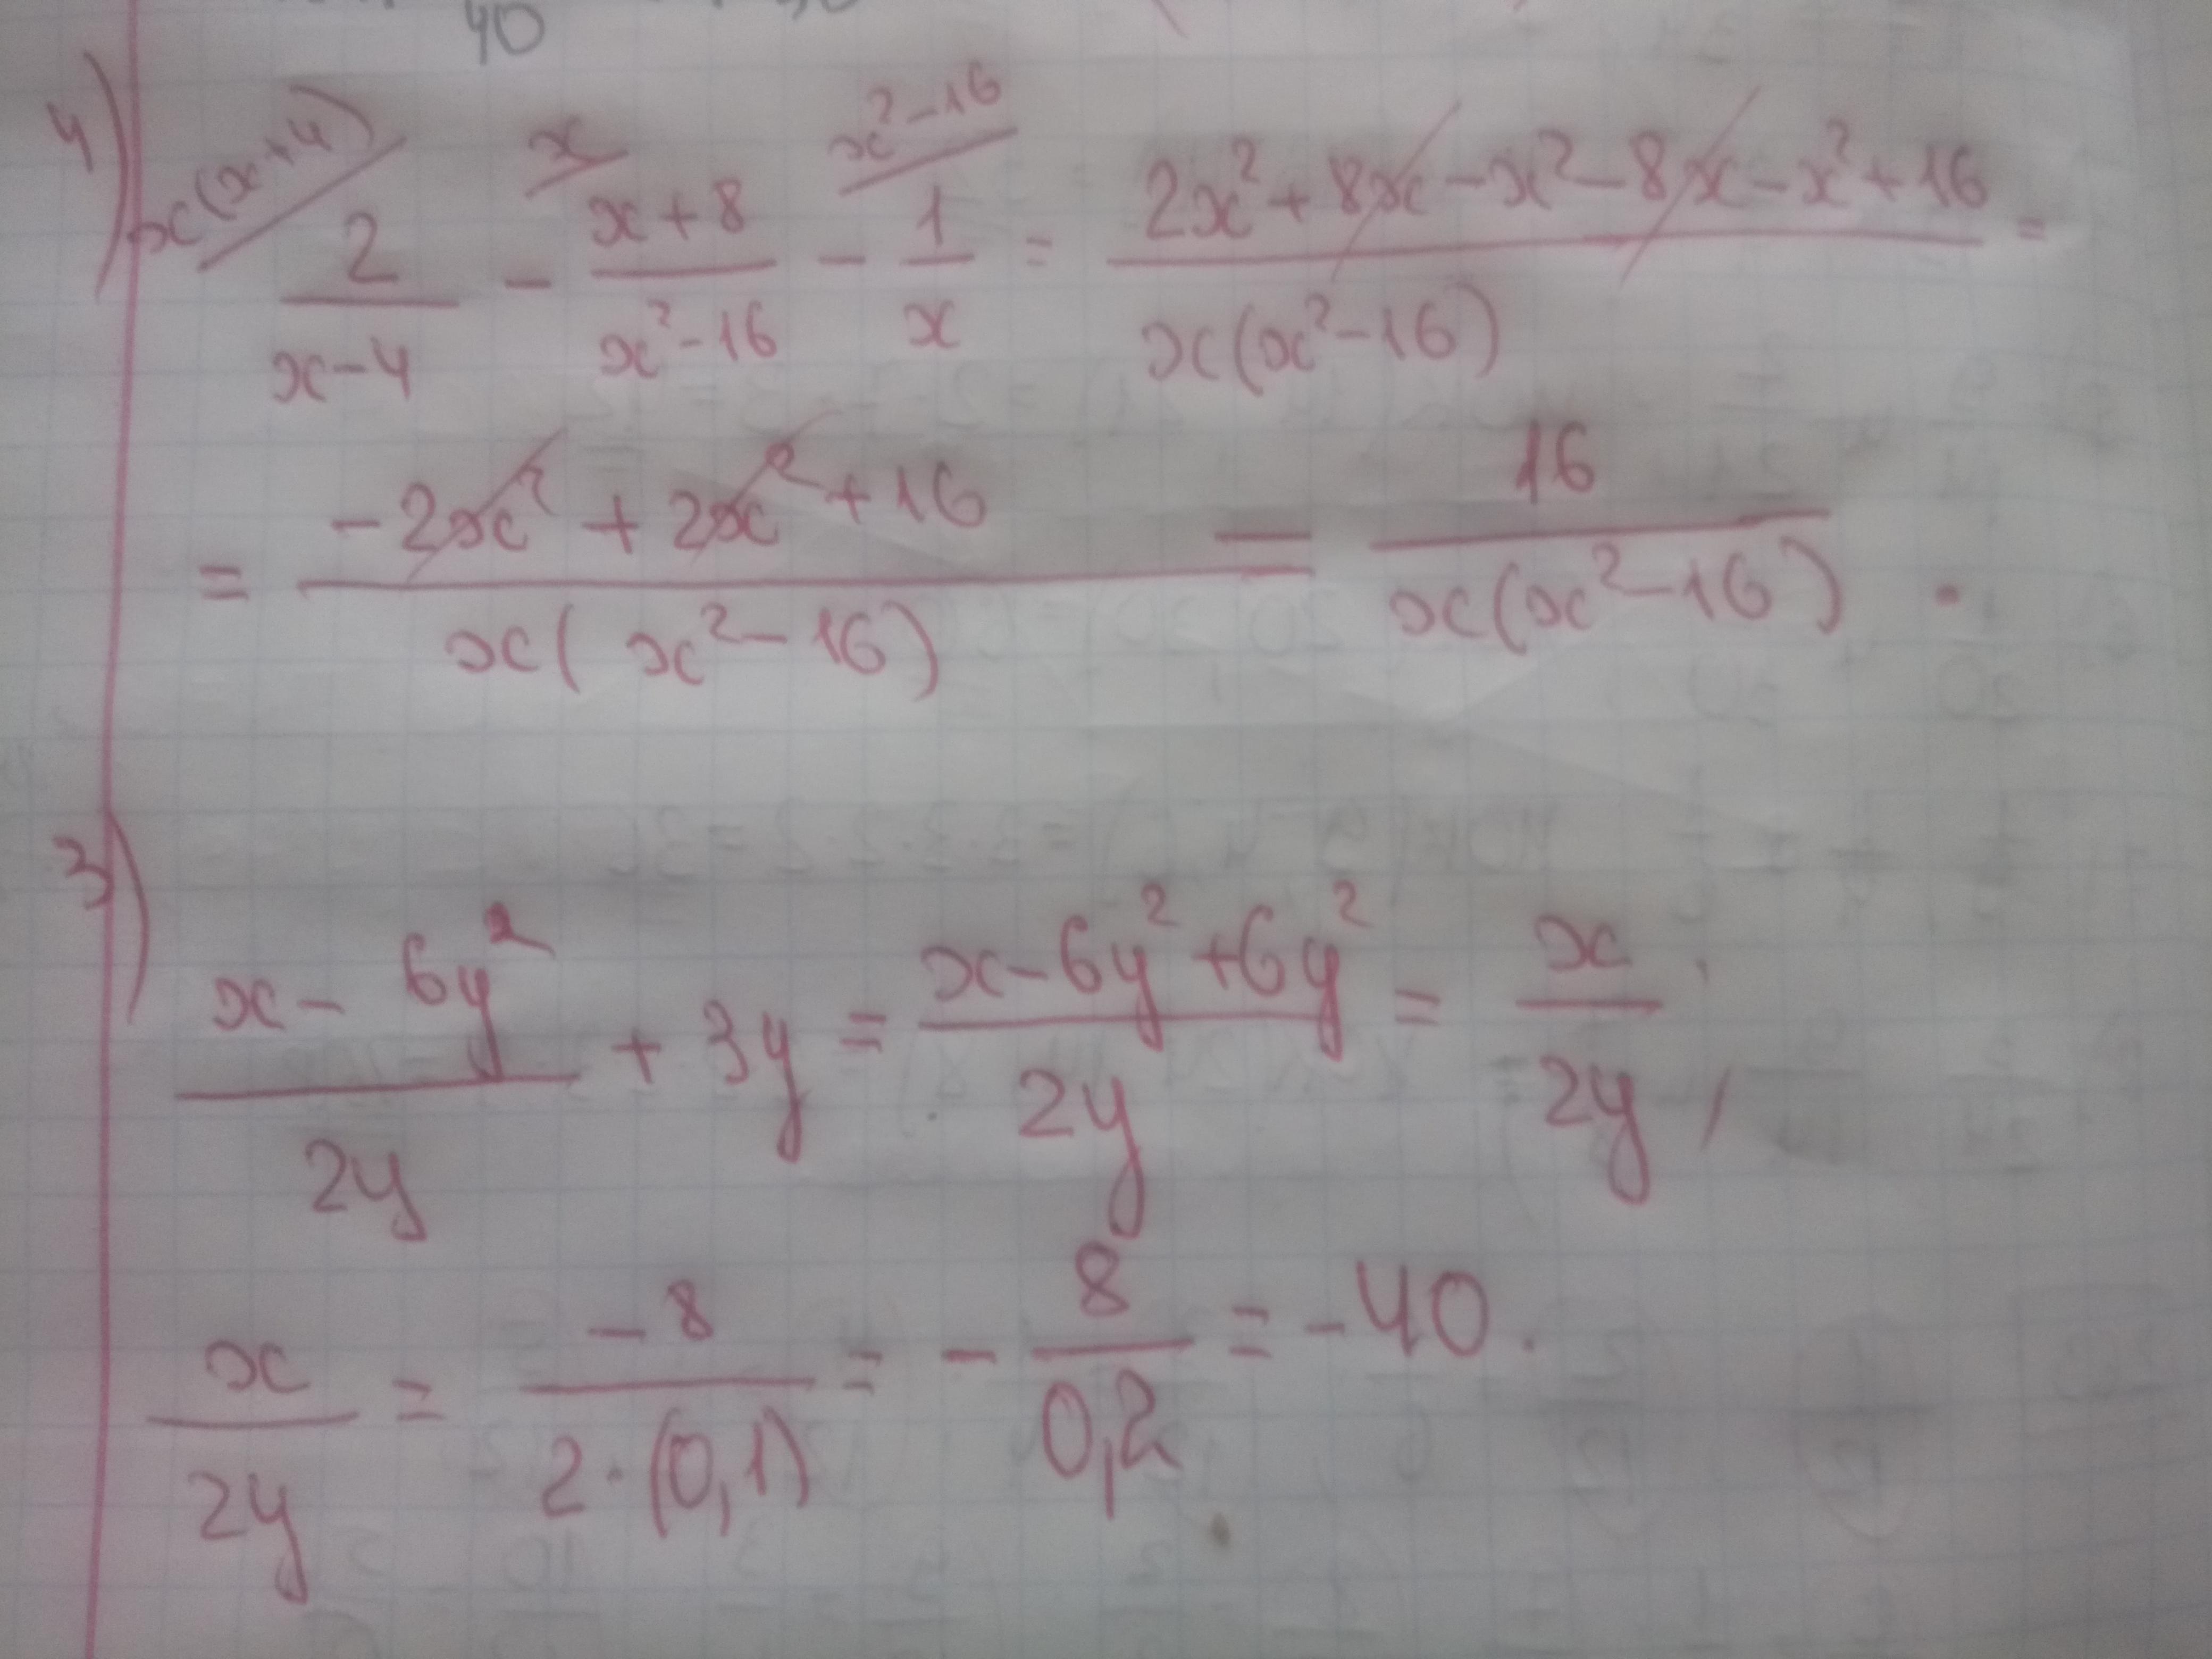 40
4) x(x+4)/ x/ x²-16/
2/(x-4) - (x+8)/(x²-16) - 1/x = (2x²+8x-x²-8x-x²+16)/(x(x²-16)) =
= (-2x²+2x²+16)/(x(x²-16)) = 16/(x(x²-16)).
3)
(x-6y²)/(2y) + 3y = (x-6y²+6y²)/(2y) = x/(2y),
x/(2y) = -8/(2·(0,1)) = -8/(0,2) = -40.